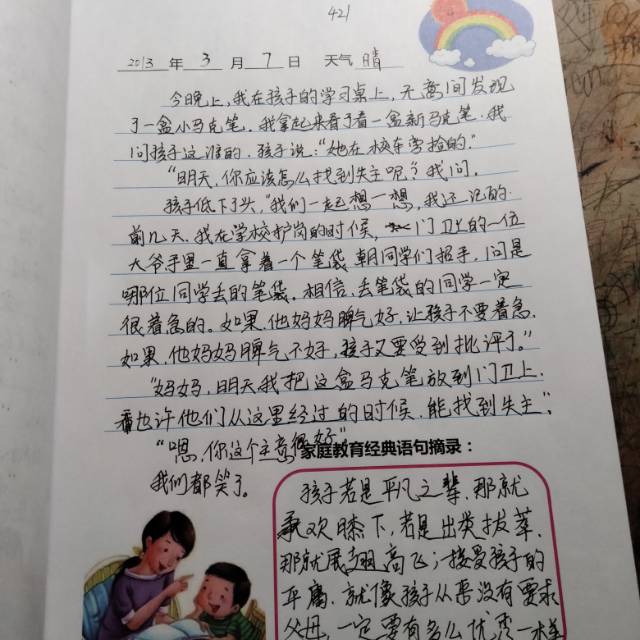 421
2013 年 3 月 7 日 天气 晴
今晚上,我在孩子的学习桌上,无意间发现
了一盒小马克笔。我拿起来看了看一盒新马克笔。我
问孩子这谁的,孩子说:“她在校车旁捡的。”
“明天,你应该怎么找到失主呢?”我问。
孩子低下了头,“我们一起想一想,我还记的
前几天,我在学校护岗的时候,门卫上的一位
大爷手里一直拿着一个笔袋,朝同学们招手,问是
哪位同学丢的笔袋。相信,丢笔袋的同学一定
很着急的。如果,他妈妈脾气好,让孩子不要着急.
如果,他妈妈脾气不好,孩子又要受到批评了。”
“妈妈,明天我把这盒马克笔放到门卫上.
也许他们从这里经过的时候,能找到失主”。
“嗯,你这个主意很好”。
我们都笑了。
家庭教育经典语句摘录:
孩子若是平凡之辈,那就
承欢膝下,若是出类拔萃,
那就展翅高飞;接受孩子的
平庸,就像孩子从来没有要求
父母,一定要有多么优秀一样